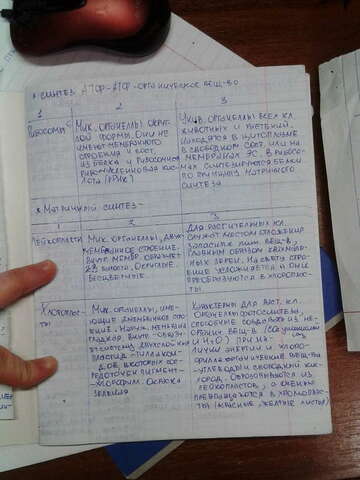 * СИНТЕЗ АТФ - АТФ - ОРГАНИЧЕСКОЕ ВЕЩ-ВО
1
2
3
РИБОСОМЫ
МИК. ОРГАНЕЛЛЫ ОКРУГ-
ЛОЙ ФОРМЫ. ОНИ НЕ
ИМЕЮТ МЕМБРАННОГО
СТРОЕНИЯ И СОСТ.
ИЗ БЕЛКА И РИБОСОМНОЙ
РИБОНУКЛЕИНОВАЯ КИС-
ЛОТЫ (РРНК)
УНИВ. ОРГАНЕЛЛЫ ВСЕХ КЛ.
ЖИВОТНЫХ И РАСТЕНИЙ.
НАХОДЯТСЯ В ЦИТОПЛАЗМЕ
В СВОБОДНОМ СОСТ. ИЛИ НА
МЕМБРАНАХ ЭС. В РИБОСО-
МАХ СИНТЕЗИРУЮТСЯ БЕЛКИ
ПО ПРИНЦИПУ МАТРИЧНОГО
СИНТЕЗА
* МАТРИЧНЫЙ СИНТЕЗ -
1
2
3
ЛЕЙКОПЛАСТЫ
МИК. ОРГАНЕЛЛЫ, ДВУХ-
МЕМБРАННОЕ СТРОЕНИЕ.
ВНУТР. МЕМБР. ОБРАЗУЕТ
2-3 ВЫРОСТА. ОКРУГЛЫЕ.
БЕСЦВЕТНЫЕ.
ДЛЯ РАСТИТЕЛЬНЫХ КЛ.
СЛУЖАТ МЕСТОМ ОТЛОЖЕНИЯ
ЗАПАСНЫХ ПИТ. ВЕЩ-В,
ГЛАВНЫМ ОБРАЗОМ КРАХМАЛЬ-
НЫХ ЗЁРЕН. НА СВЕТУ СТРО-
ЕНИЕ УСЛОЖНЯЕТСЯ И ОНИ
ПРЕОБРАЗУЮТСЯ В ХЛОРОПЛАС-
ТЫ
ХЛОРОПЛАС-
ТЫ
МИК. ОРГАНЕЛЛЫ, ИМЕ-
ЮЩИЕ 2МЕМБРАННОЕ СТРО-
ЕНИЕ. НАРУЖ. МЕМБРАНА
ГЛАДКАЯ. ВНУТР. ОБРАЗУ-
ЕТ СИСТЕМУ ДВУХСЛОЙНЫХ
ПЛАСТИН - ТИЛАКОИ-
ДОВ, В КОТОРЫХ СОС-
РЕДОТОЧЕН ПИГМЕНТ -
- ХЛОРОФИЛЛ. ОКРАСКА
ЗЕЛЁНАЯ
ХАРАКТЕРНЫ ДЛЯ РАСТ. КЛ.
ОРГАНЕЛЛЫ ФОТОСИНТЕЗА,
СПОСОБНЫЕ СОЗДАВАТЬ ИЗ НЕ-
ОРГАНИЧ. ВЕЩ-В
И H₂O) ПРИ НА-
ЛИЧИИ ЭНЕРГИИ И ХЛОРО-
ФИЛЛА ОРГАНИЧЕСКИЕ ВЕЩ-ВА
- УГЛЕВОДЫ И СВОБОДНЫЙ КИС-
ЛОРОД. ОБРАЗОВЫВАЮТСЯ ИЗ
ЛЕЙКОПЛАСТОВ, А ОСЕНЬЮ
ПРЕВРАЩАЮТСЯ В ХРОМОПЛАС-
ТЫ (КРАСНЫЕ, ЖЁЛТЫЕ ЛИСТЬЯ)